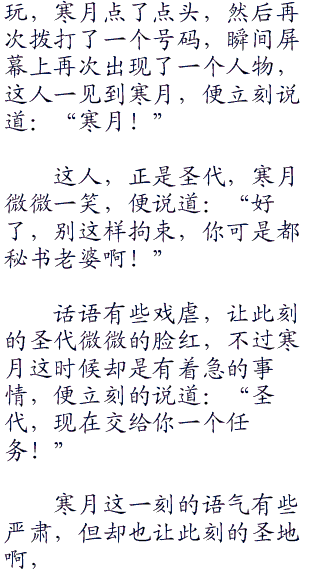 玩，寒月点了点头，然后再
次拨打了一个号码，瞬间屏
幕上再次出现了一个人物，
这人一见到寒月，便立刻说
道：“寒月！”
这人，正是圣代，寒月
微微一笑，便说道：“好
了，别这样拘束，你可是都
秘书老婆啊！”
话语有些戏虐，让此刻
的圣代微微的脸红，不过寒
月这时候却是有着急的事
情，便立刻的说道：“圣
代，现在交给你一个任
务！”
寒月这一刻的语气有些
严肃，但却也让此刻的圣地
啊，